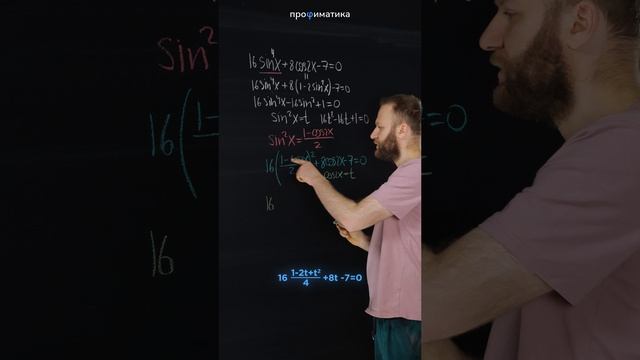 профиматика
16 sin⁴x + 8cos2x - 7 = 0
16 sin⁴x + 8(1-2sin²x) - 7 = 0
16 sin⁴x - 16sin² + 1 = 0
sin²x = t 16t² - 16t + 1 = 0
sin²x = (1-cos2x)/2
+ 8cos2x - 7 = 0
cos2x = t
16
16 (1-2t+t²)/4 +8t -7=0
sin²
16(
16